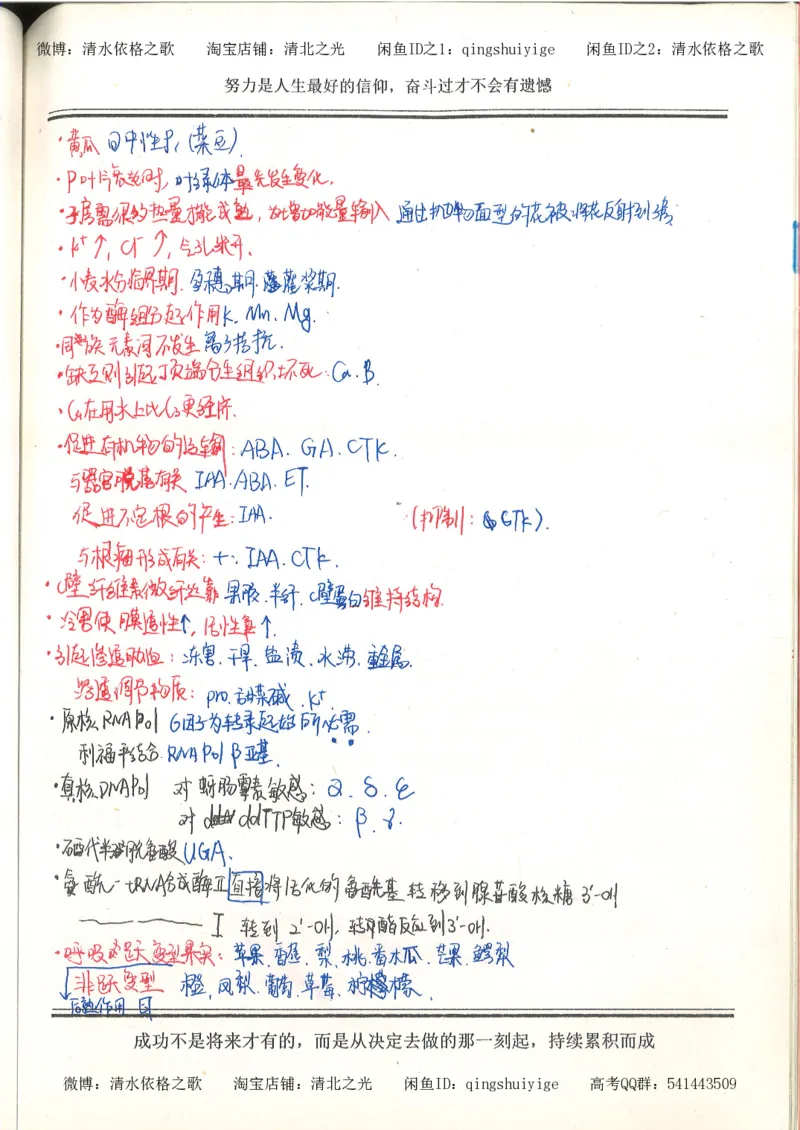 微博：清水依格之歌 淘宝店铺：清北之光 闲鱼ID之1：qingshuiyige 闲鱼ID之2：清水依格之歌
努力是人生最好的信仰，奋斗过才不会有遗憾
·黄瓜 日中性植物（菜豆）.
·叶片衰老时，叶绿体最先发生变化.
·子房需很多热量才能成熟，为增加能量输入 通过抛物面型的花被将花反射到
·K⁺↑，Cl⁻↑，气孔张开.
·小麦水分临界期.孕穗期.灌浆期.
·作为酶组分起作用K、Mn、Mg.
·同族元素间不发生离子拮抗.
·缺乏则引起顶端分生组织坏死：Ca.B.
·C₄在用水上比C₃更经济.
·促进有机物的运输：ABA．GA．CTK．
与器官脱落有关 IAA.ABA．ET.
促进不定根的产生：IAA. （抑制：CTK）.
与根瘤形成有关：IAA．CTK．
·C壁纤维素微纤丝靠果胶.半纤.C壁蛋白维持结构.
·冷害使膜透性↑，
·引起渗透胁迫：冻害.干旱.盐渍.水涝.重金属.
渗透调节物质：pro.甜菜碱.K⁺.
·原核RNA Pol σ因子为转录起始所必需.
利福平结合RNA Pol β亚基.
·真核DNA Pol 对蚜肠霉素敏感：α．δ．ε
对ddTTP敏感：β．γ.
·硒代半胱氨酸UGA.
·氨酰-tRNA合成酶Ⅱ直接将活化的氨酰基转移到腺苷酸核糖3'-OH
Ⅰ 转到2'-OH，转酯反应到3'-OH.
·呼吸跃变型果实：苹果.香蕉.梨.桃.番木瓜.芒果.鳄梨
非跃变型 橙.凤梨.葡萄.草莓.柠檬.
后熟作用
成功不是将来才有的，而是从决定去做的那一刻起，持续累积而成
微博：清水依格之歌 淘宝店铺：清北之光 闲鱼ID：qingshuiyige 高考QQ群：541443509